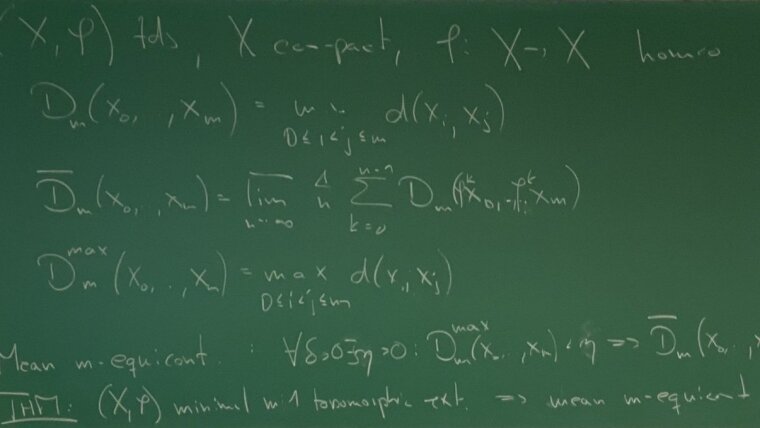 (X, φ) tds, X compact, φ: X → X homeo
D_m(x_0, ., x_m) = min_{0≤i<j≤m} d(x_i, x_j)
D̅_m(x_0, .., x_m) = lim̅_{n→∞} 1/n ∑_{k=0}^{n-1} D_m(φ^k x_0, .., φ^k x_m)
D_m^{max}(x_0, .., x_m) = max_{0≤i<j≤m} d(x_i, x_j)
Mean m-equicont. : ∀δ>0 ∃η>0: D_m^{max}(x_0, .., x_m) < η ⇒ D̅_m(x_0, .., x
THM: (X, φ) minimal m:1 topomorphic ext. ⇒ mean m-equicont